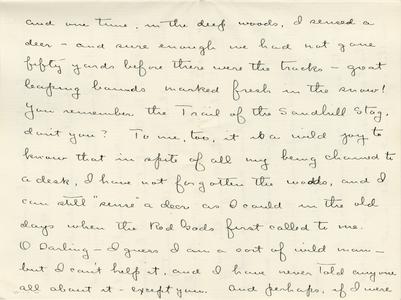 and one time, in the deep woods, I sensed a
deer - and sure enough we had not gone
fifty yards before there were the tracks - great
leaping bounds marked fresh in the snow!
You remember the Trail of the Sandhill Stag,
don't you? To me, too, it is a wild joy to
know that in spite of all my being chained to
a desk, I have not forgotten the woods, and I
can still "sense" a deer as I could in the old
days when the Red Gods first called to me.
O Darling - I guess I am a sort of wild man -
but I can't help it, and I have never told anyone
all about it - except you. And perhaps, if I were